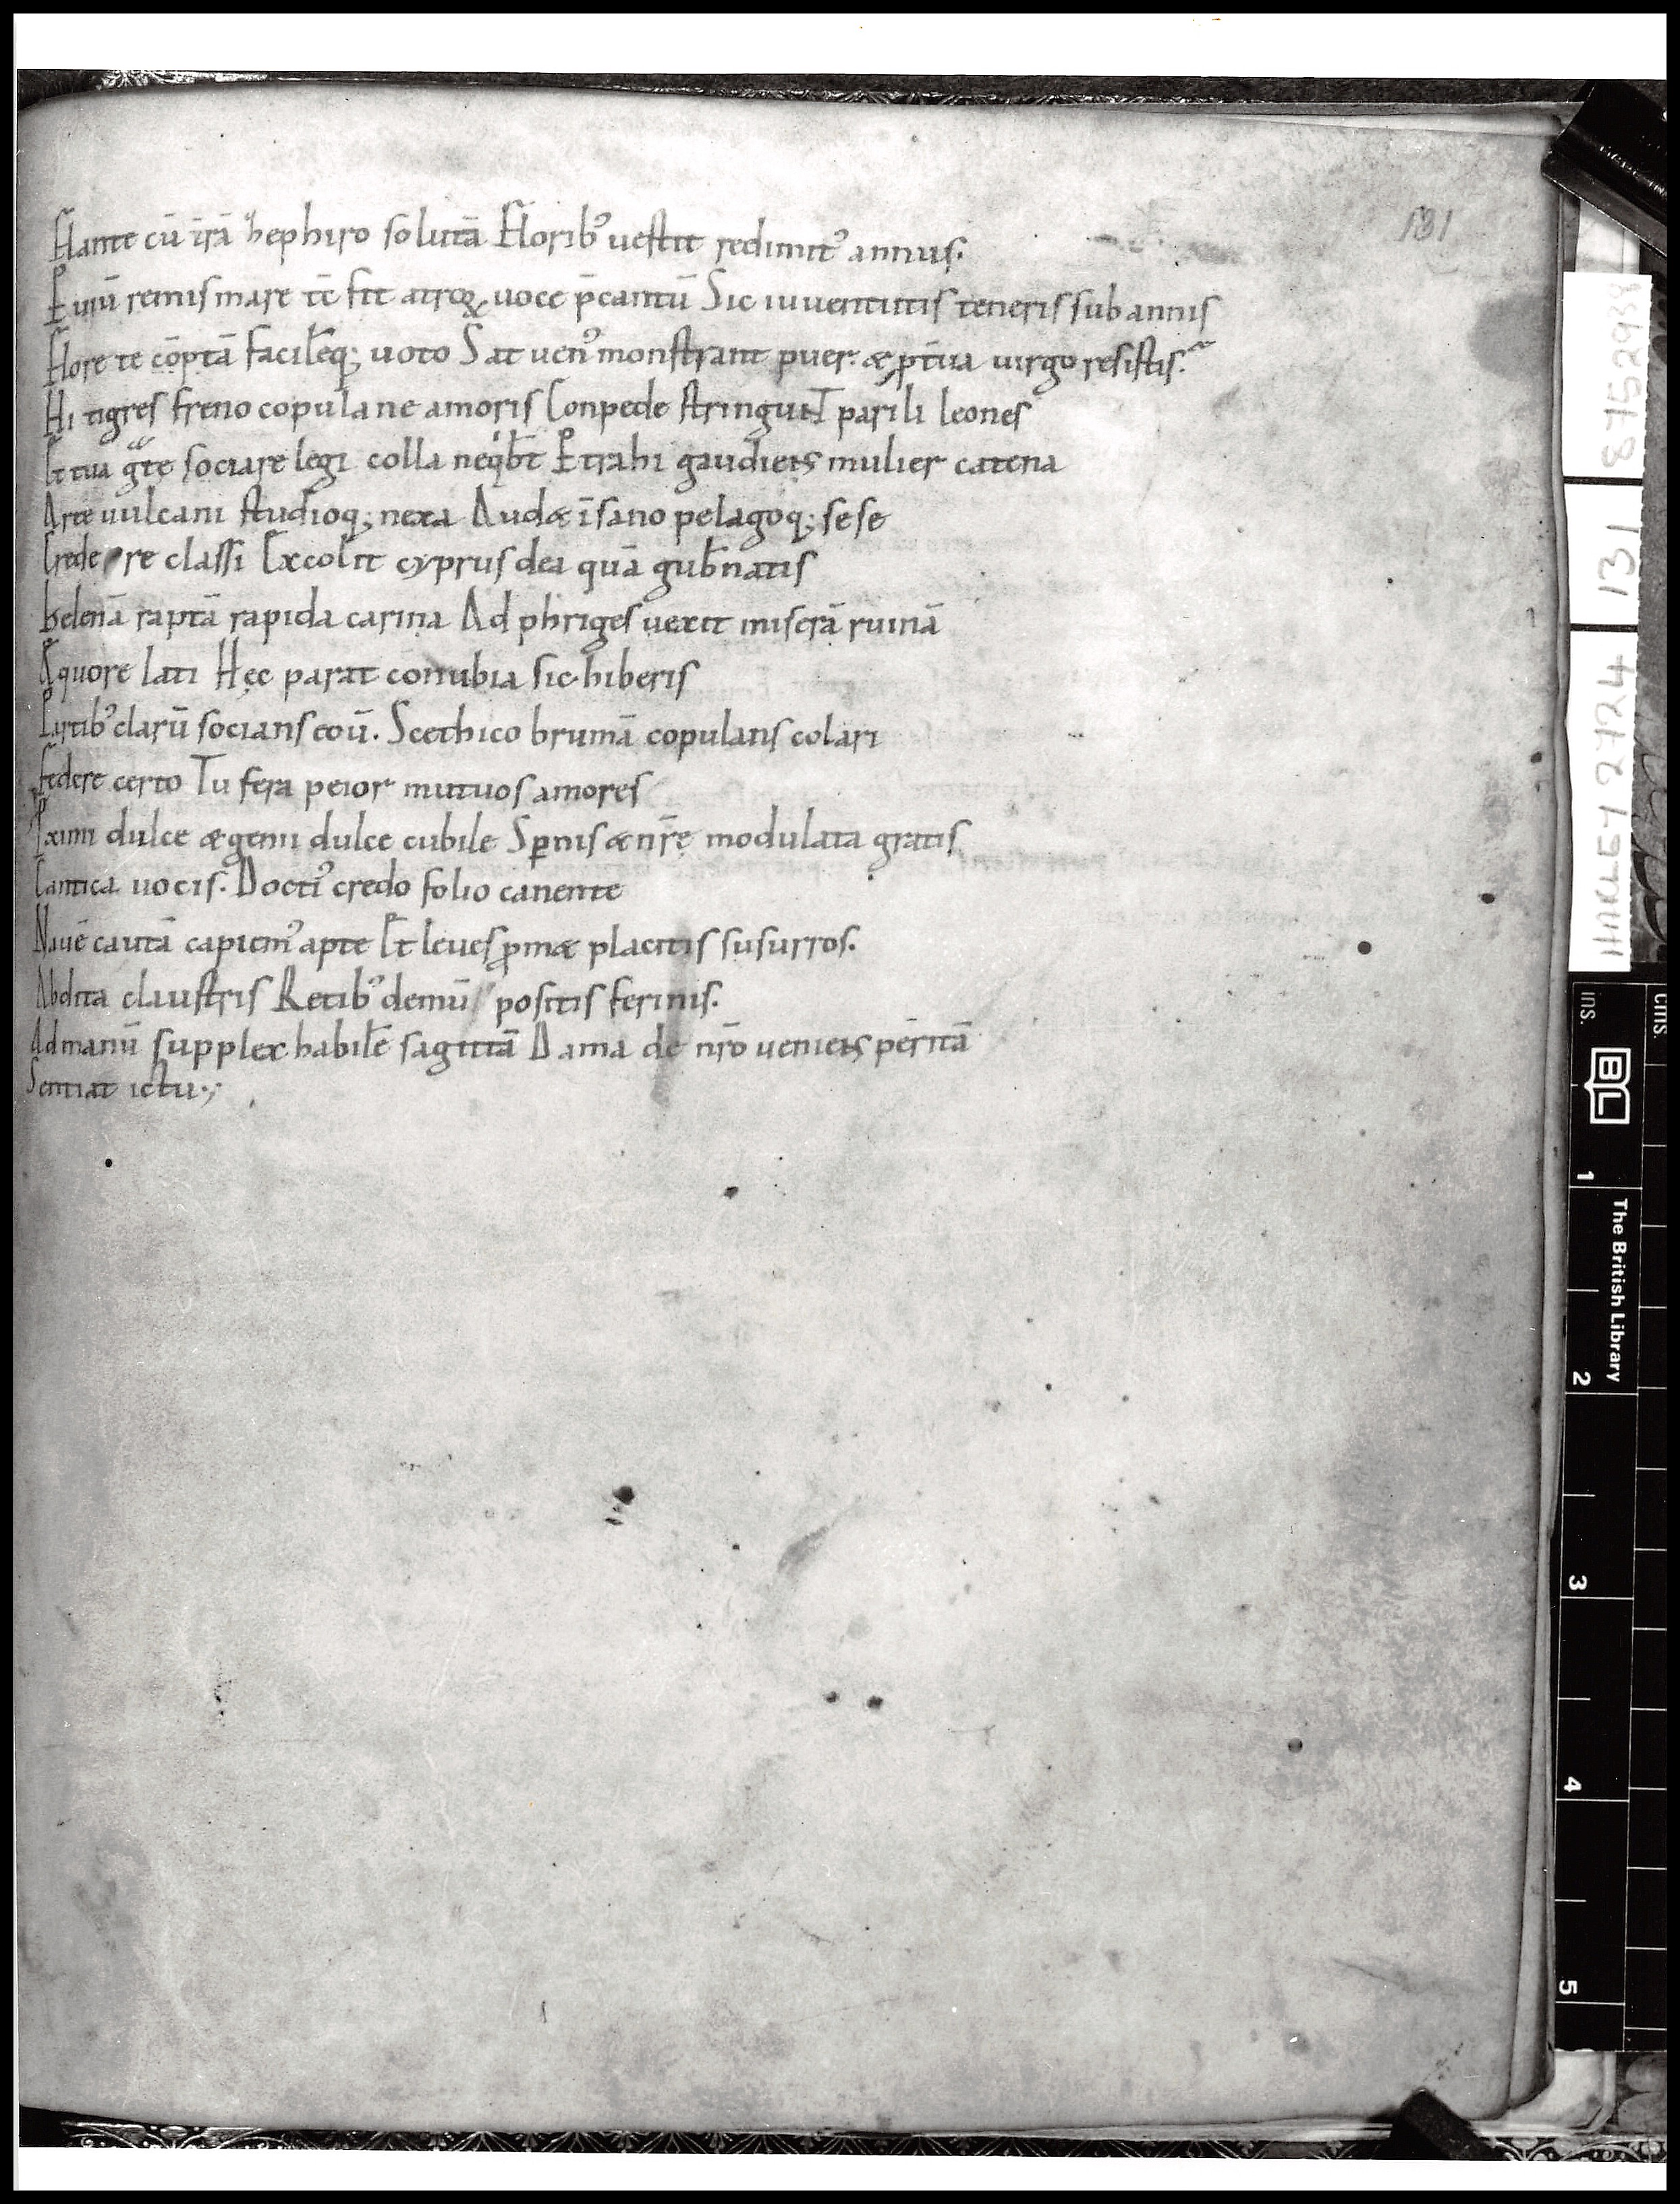 Flante cū irā hephiro solutā Floribꝰ uestit redimitꝰ annus.
Euiū remis mare tē fit atrox uoce p̄cantū Sic iuuentutis teneris sub annis
Flore te cōptā facileq; uoto Sat uenꝰ monstrant puer. & tua uirgo resistis.
Hi tigres freno copulane amoris Conpede stringunt parili leones
Et tua gͣte sociare legi colla neqͥbt Et trahi gaudens mulier catena
Arte uulcani studioq; nexa Aud& īsano pelagoq; sese
Credere classi Excolit cyprus dea quā gub̄natis
helenā raptā rapida carina Ad phriges uexit miserā ruinā
Aquore lati Hęc parat conubia sic hiberis
Partibꝰ clarū socians eoū. Scethico brumā copulans colari
federe certo Tu fera peior mutuos amores
Pximi dulce & genu dulce cubile Sꝑnis & nr̄ę modulata gratis
Cantica uocis. Doctiꝰ credo folio canente
Nauē cautā capiemꝰ apte Et leues ꝓm& placitis susurros.
Abdita claustris Retibꝰ demū positis ferinis.
Ad manū supplex habilē sagittā Dama de nr̄o ueniens per̄itā
Sentiat ictu.;
131
HARLEY 2724 131 8752938
ins.
cms.
BL
The British Library
1
2
3
4
5